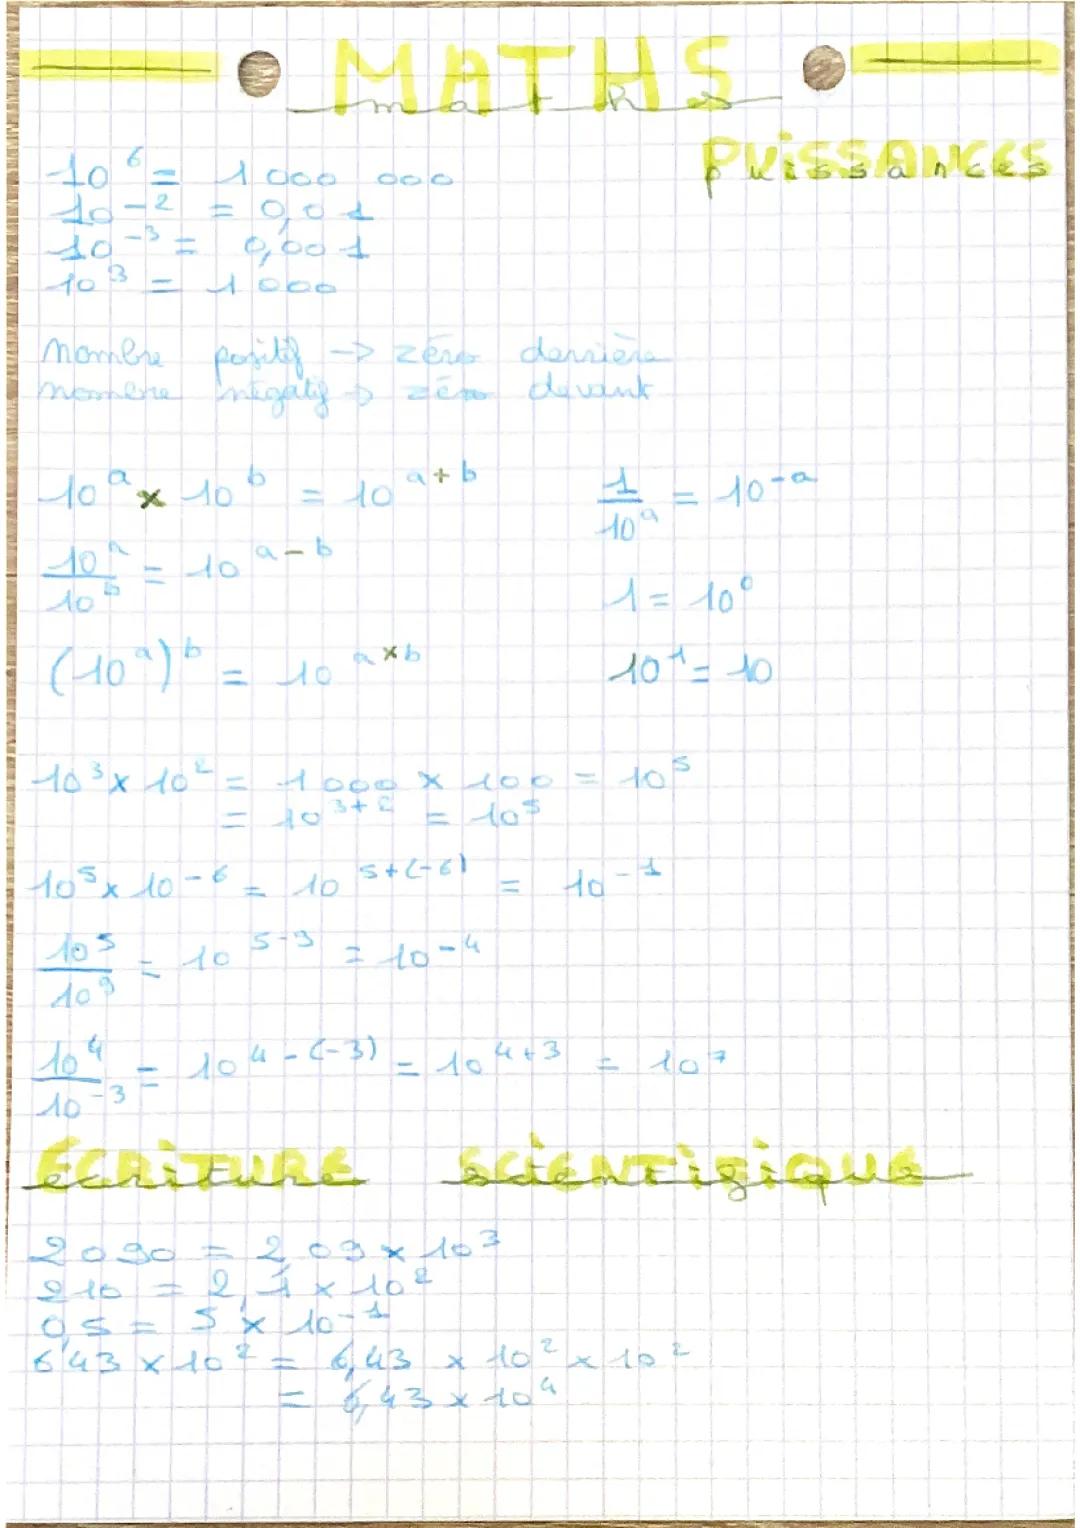 MATHS
maths
PUISSANCES
puissances
10⁶ = 1 000 000
10⁻² = 0,01
10⁻³ = 0,001
10³ = 1 000
nombre positif -> zéro derrière
nombre négatif -> zéro devant
10ᵃ × 10ᵇ = 10ᵃ⁺ᵇ
10ᵃ/10ᵇ = 10ᵃ⁻ᵇ
(10ᵃ)ᵇ = 10ᵃˣᵇ
1/10ᵃ = 10⁻ᵃ
1 = 10⁰
10¹ = 10
10³ × 10² = 1 000 × 100 = 10⁵
= 10³⁺² = 10⁵
10⁵ × 10⁻⁶ = 10⁵⁺⁽⁻⁶⁾ = 10⁻¹
10⁵/10⁹ = 10⁵⁻⁹ = 10⁻⁴
10⁴/10⁻³ = 10⁴⁻⁽⁻³⁾ = 10⁴⁺³ = 10⁷
ÉCRITURE SCIENTIFIQUE
écriture scientifique
2090 = 2,09 × 10³
210 = 2,1 × 10²
0,5 = 5 × 10⁻¹
643 × 10² = 6,43 × 10² × 10²
= 6,43 × 10⁴